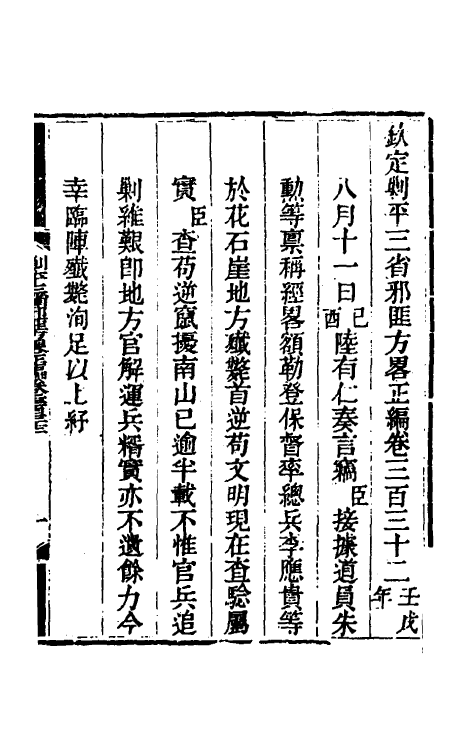 欽定剿平三省邪匪方畧正編卷三百三十二壬戌年
八月十一日己酉陸有仁奏言竊臣接據道員朱
勳等禀稱經畧額勒登保督率總兵李應貴等
於花石崖地方殲斃首逆苟文明現在查驗屬
實臣查苟逆竄擾南山已逾半載不惟官兵追
剿維艱即地方官解運兵糈實亦不遺餘力今
幸臨陣殲斃洵足以上紓